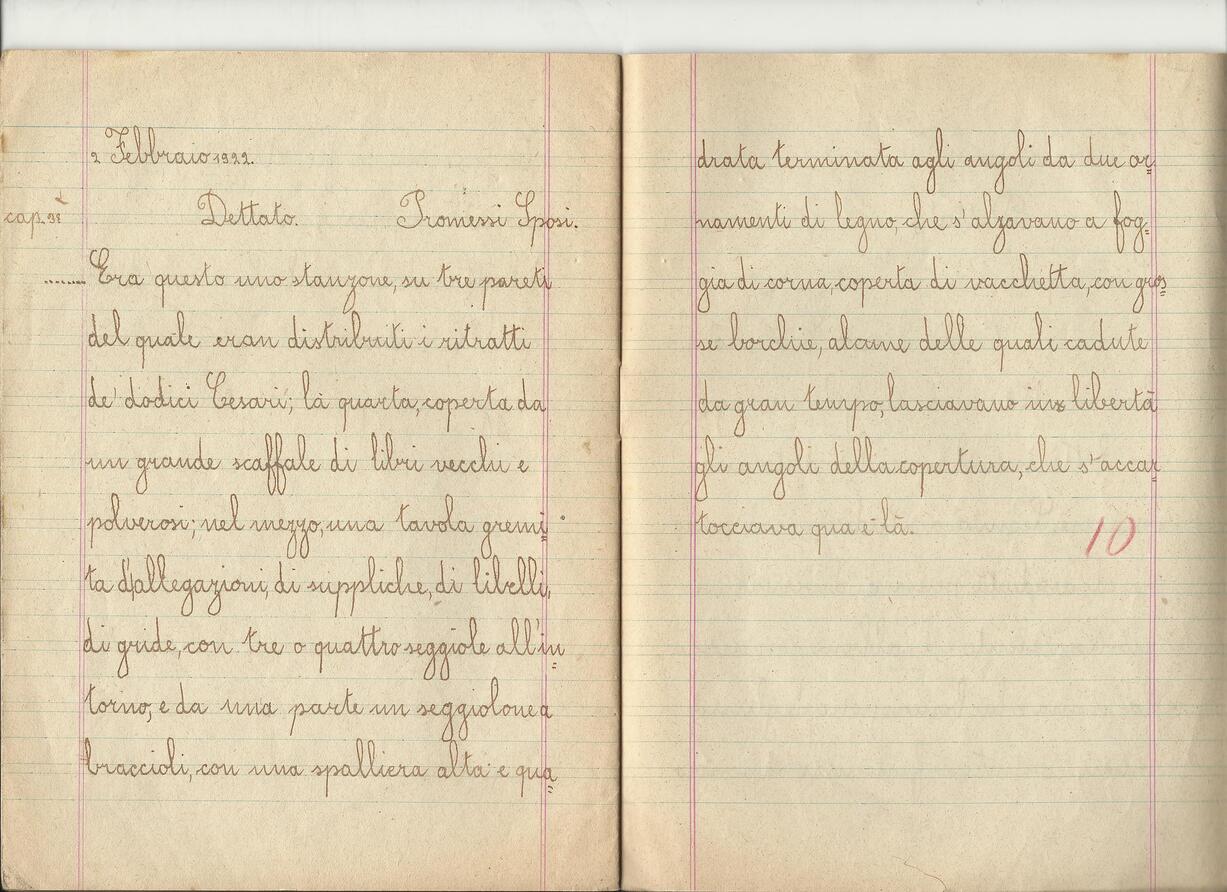 2 Febbraio 1922.
Dettato. Promessi Sposi.
cap.
........ Era questo uno stanzone, su tre pareti
del quale eran distribuiti i ritratti
de' dodici Cesari; la quarta, coperta da
un grande scaffale di libri vecchi e
polverosi; nel mezzo, una tavola gremi=
ta d'allegazioni, di suppliche, di libelli,
di gride, con tre o quattro seggiole all'in=
torno, e da una parte un seggiolone a
braccioli, con una spalliera alta e qua=
drata terminata agli angoli da due or=
namenti di legno, che s'alzavano a fog=
gia di corna, coperta di vacchetta, con gros=
se borchie, alcune delle quali cadute
da gran tempo, lasciavano in libertà
gli angoli della copertura, che s'accar=
tocciava qua e là.
10